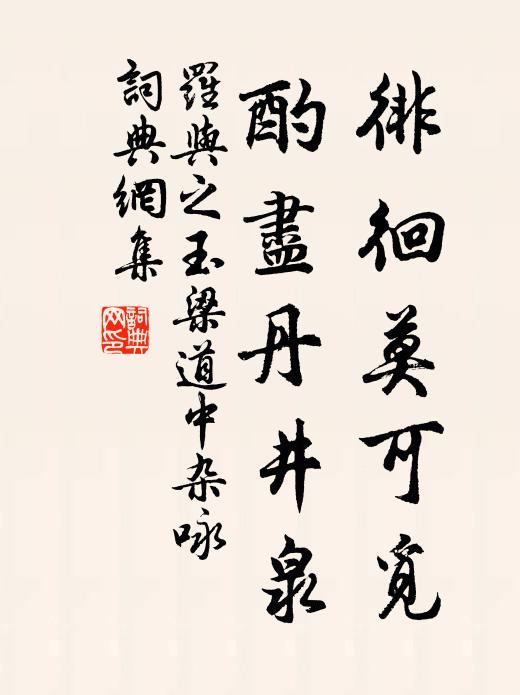 徘徊莫可覓
酌盡丹井泉
羅與之玉梁道中杂咏
詞典網集
詞典
网印